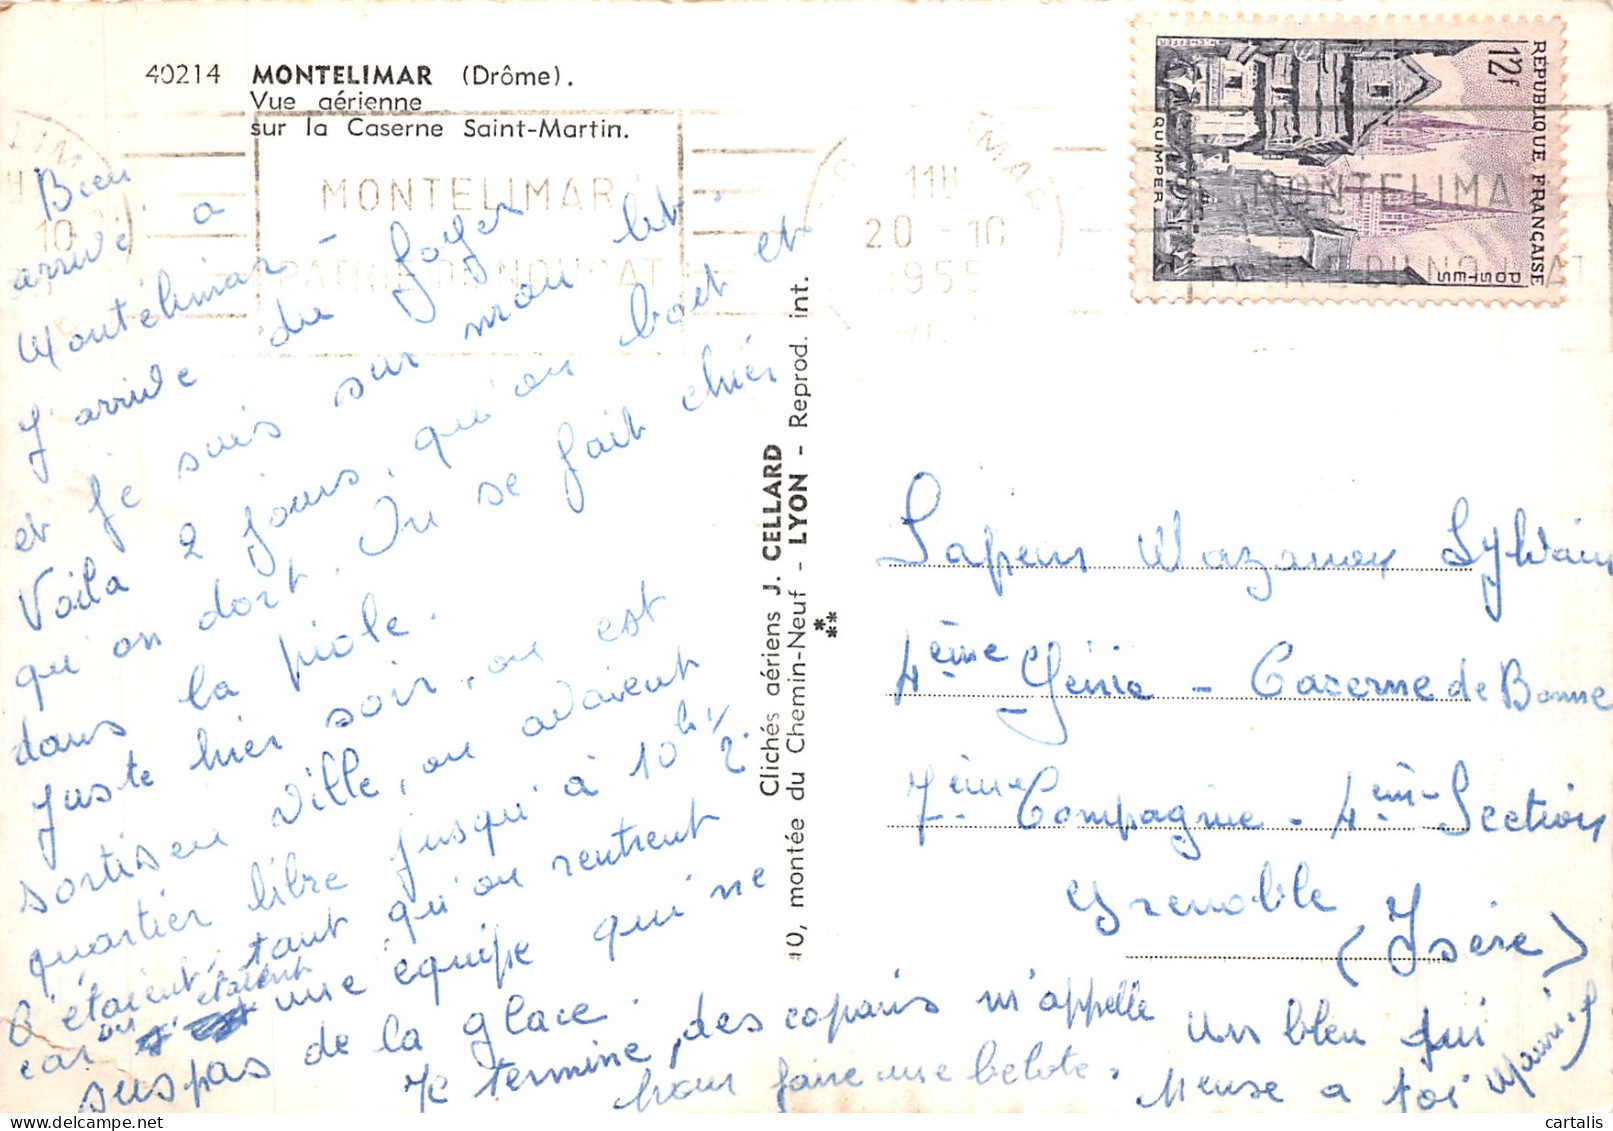 40214 MONTELIMAR (Drôme).
Vue aérienne
sur la Caserne Saint-Martin.
MONTELIMAR
PATRIE DU NOUGAT
11H
20 - 10
1955
REPUBLIQUE FRANÇAISE
12f
POSTES
QUIMPER
MONTELIMA
Bien
arrivé à
Montélimar -
J'arrive du foyer
et je suis sur mon lit.
Voila 2 jours, qu'on boit et
qu'on dort. On se fait chier
dans la piole.
Juste hier soir, on est
sortis en ville, on avaient
quartier libre jusqu'à 10h 1/2.
C'étaient, tant qu'on rentrent
car on étaient une équipe qui ne
sus pas de la glace.
Je termine, des copains m'appelle
pour faire une belote.
Un bleu qui
pense a toi
Clichés aériens J. CELLARD
10, montée du Chemin-Neuf - LYON - Reprod. int.
Sapeur Sylvain
4ème Génie - Caserne de Bonne
7ème Compagnie - 4ème Section
Grenoble
(Isère)
cartalis
delcampe.net